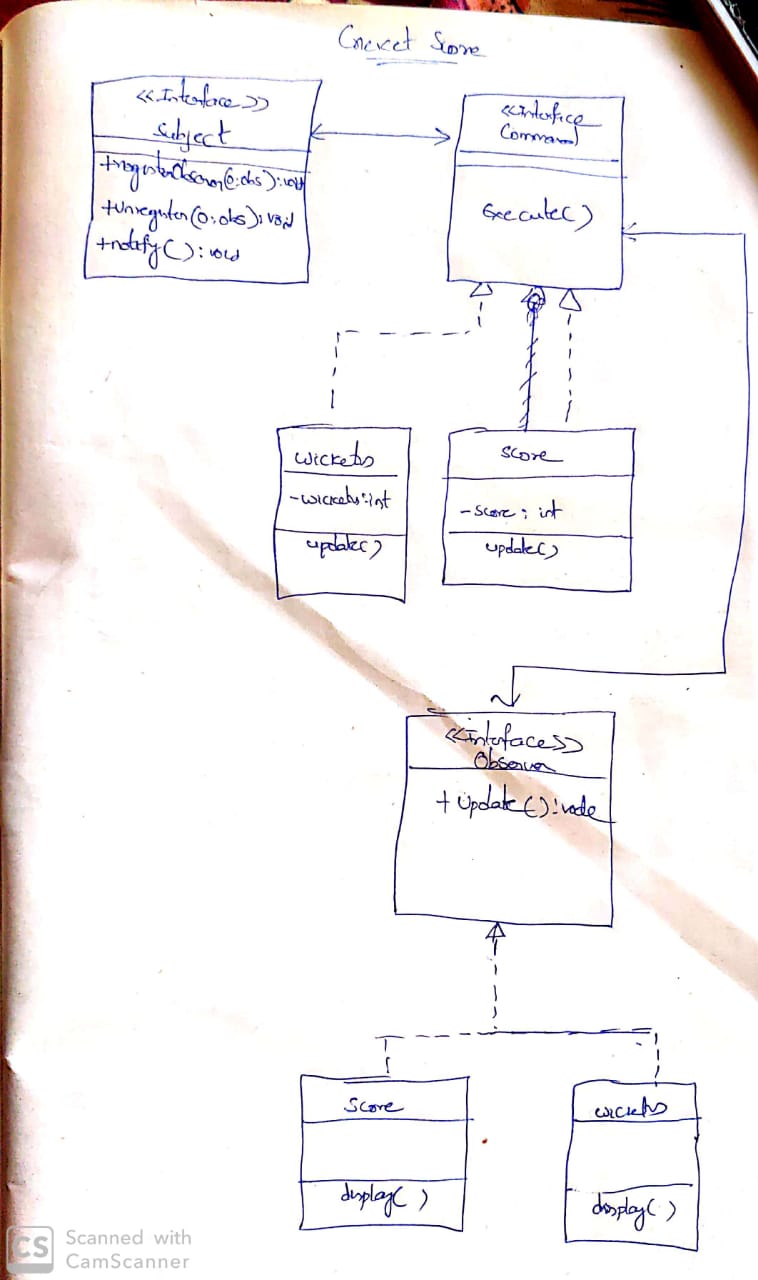 Cricket Score
<<Interface>>
Subject
+registerObserver(O:obs):void
+Unregister(O:obs):void
+notify():void
<<Interface
Command
Execute()
wickets
-wickets:int
update()
score
-score: int
update()
<<Interface>>
Observer
+ Update():vode
Score
display()
wickets
display()
CS Scanned with
CamScanner